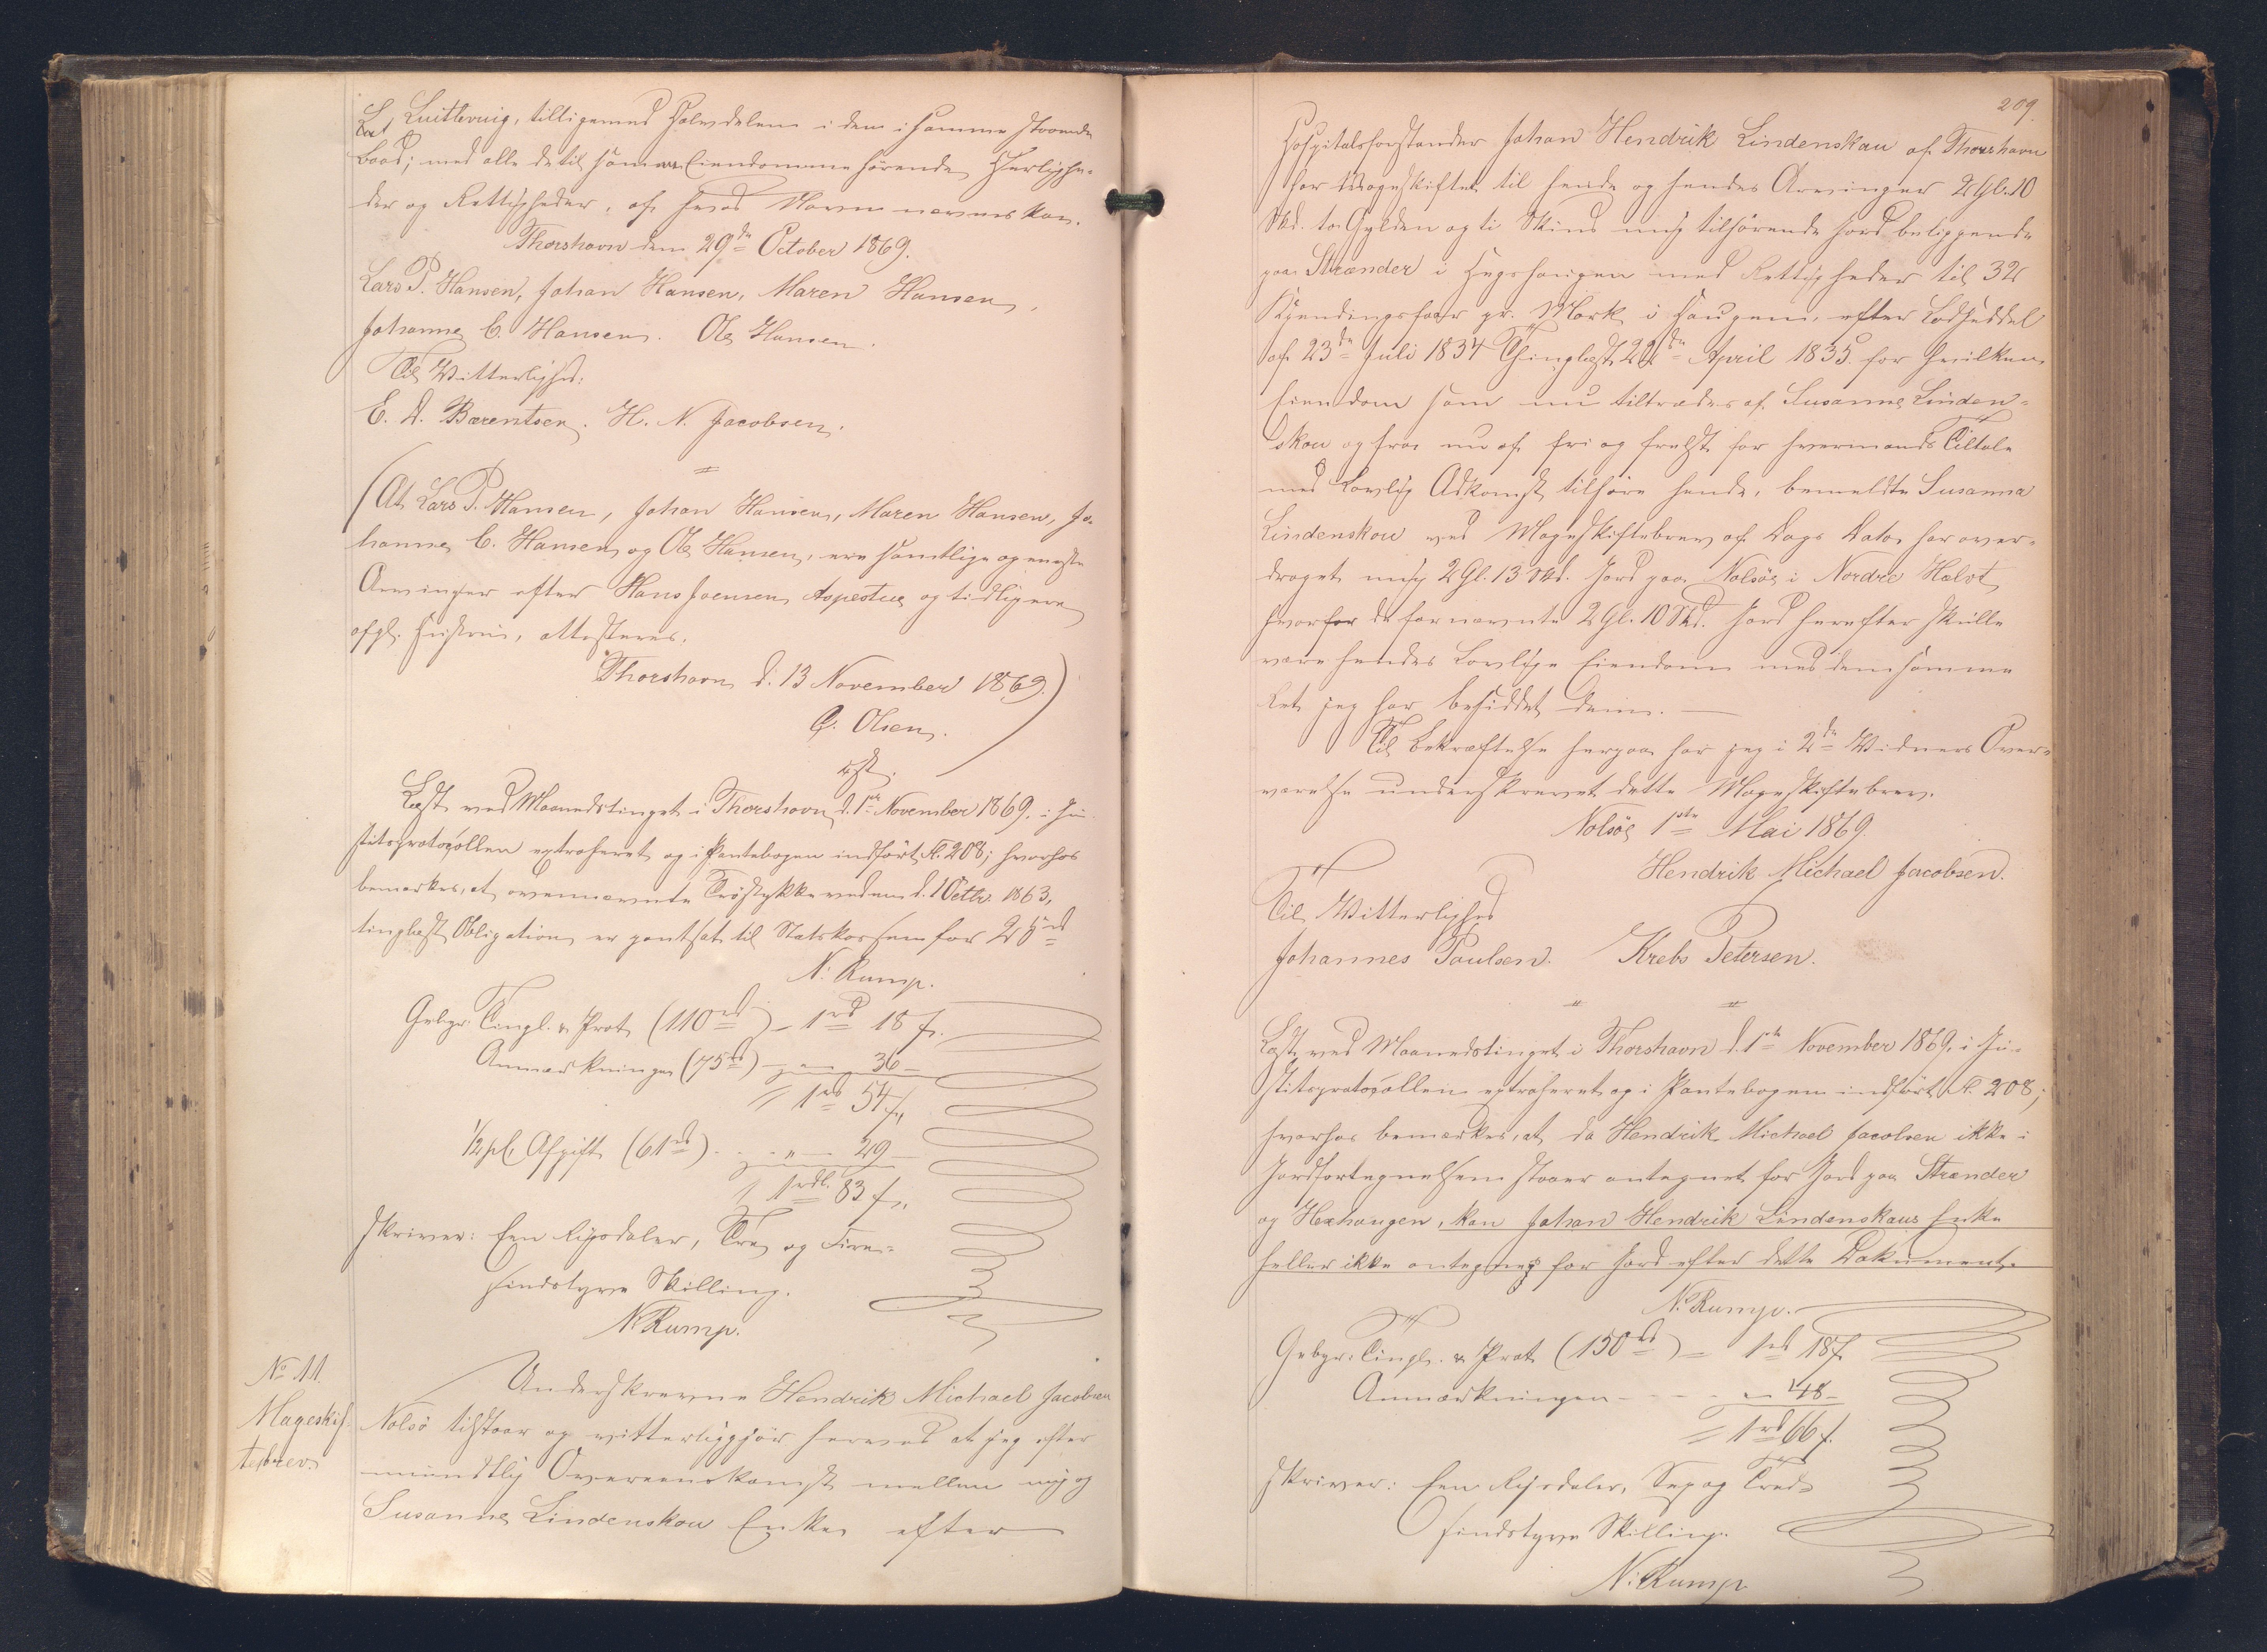 L. Quitlevuig, tilligemed Halvdelen i den i samme staaende
Baad; med alle de til samme Eiendomme hørende Herlighe-
der og Rettigheder, af hvad Navn nævnes kan.
Thorshavn den 29de October 1869.
Lars P. Hansen, Johan Hansen, Maren Hansen,
Johanne C. Hansen. Ole Hansen.
Til Vitterlighed:
E. A. Bærentsen. H. N. Jacobsen.
(At Lars P. Hansen, Johan Hansen, Maren Hansen, Jo-
hanne C. Hansen og Ole Hansen, ere samtlige og eneste
Arvinger efter Hans Joensen Aspestue og tidligere
afg. Hustrue, attesteres.
Thorshavn d. 13 November 1869.)
C. Olsen.
Læst ved Maanedstinget i Thorshavn d. 1ste November 1869, i Ju-
stitsprotocollen extraheret og i Pantebogen indført Fl. 208; hvorhos
bemærkes, at ovennævnte Tröstykke ved en d. 1 Octbr. 1863,
tinglæst Obligation er pantsat til Statskassen for 25rd
N. Rump.
Gebyr: Tingl. & Prot. (110rd) – 1rd 18 s.
Anmærkningen (75rd) – 36 –
= 1rd 54 s.
1/2 pC. Afgift (61rd) . . „ – 29 –
1rdl. 83 s.
skriver: Een Rigsdaler, Tre og Fire-
sindstyve Skilling.
N. Rump.
No 11.
Mageskif-
tebrev.
Underskrevne Hendrik Michael Jacobsen
Nolsö tilstaar og vitterliggjör herved at jeg efter
mundtlig Overeenskomst mellem mig og
Susanne Lindenskou Enke efter
209.
Hospitalsforstander Johan Hendrik Lindenskau af Thorshavn
har Mageskiftet til hende og hendes Arvinger 2 Gl. 10
Skd. to Gylden og ti Skind mig tilhörende Jord beliggende
paa Strænder i Hegshaugen med Rettigheder til 32
Kjendingsfaar pr. Mark i Haugen, efter Lodseddel
af 23de Juli 1834 Thinglæst 22de April 1835. for hvilken
Eiendom som nu tiltrædes af Susanne Linden-
skou og fra nu af fri og frelst for hvermands Tiltale
med Lovlig Adkomst tilhöre hende, bemeldte Susanna
Lindenskou ved Mageskiftebrev af Dags Dato har over-
draget mig 2 Gl. 13 Skd. Jord paa Nolsöe i Nordre Halvt,
hvorfor de fornævnte 2 Gl. 10 Skd. Jord herefter skulle
være hendes Lovlige Eiendom med den samme
Ret jeg har besiddet dem.
Til Bekræftelse herpaa har jeg i 2de Vidners Over-
værelse underskrevet dette Mageskiftebrev.
Nolsöe 1ste Mai 1869.
Hendrik Michael Jacobsen.
Til Vitterlighed
Johannes Poulsen. Krebs Petersen.
Læst ved Maanedstinget i Thorshavn d. 1ste November 1869, i Ju-
stitsprotocollen extraheret og i Pantebogen indført Fl. 208;
hvorhos bemærkes, at da Hendrik Michael Jacobsen ikke i
Jordfortegnelsen staaer antegnet for Jord paa Strænder
og Hexhaugen, kan Johan Hendrik Lindenskaus Enke
heller ikke antegnes for Jord efter dette Dokument.
N. Rump.
Gebyr: Tingl. & Prot. (150rd) – 1rd 18 s.
Anmærkningen – – – „ – 48 –
= 1rd 66 s.
skriver: Een Rigsdaler, Sex og Tred-
sindstyve Skilling.
N. Rump